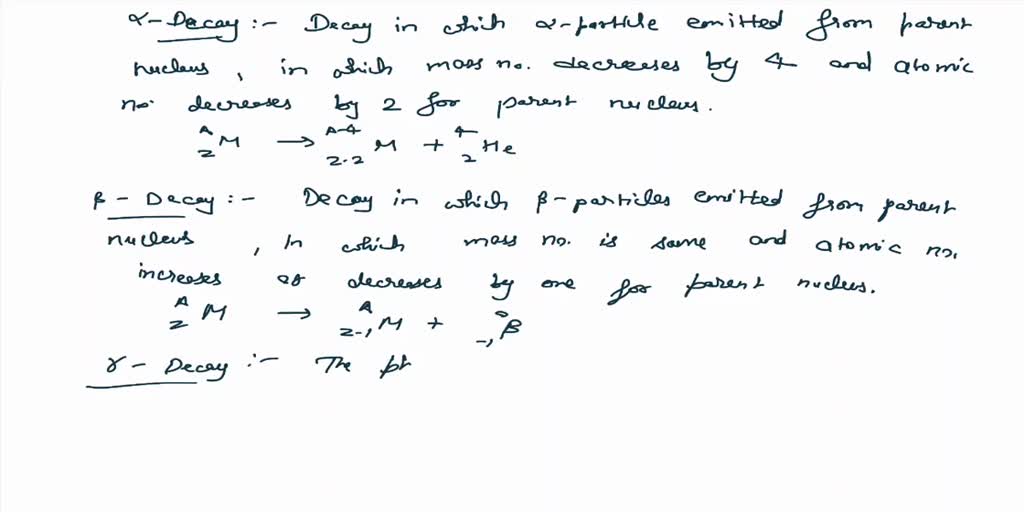 α-Decay :- Decay in which α-particle emitted from parent
nucleus, in which mass no. decreases by 4 and atomic
no. decreases by 2 for parent nucleus.
ᴬ_Z M → ᴬ⁻⁴_Z-2 M + ⁴₂He
β - Decay :- Decay in which β-particles emitted from parent
nucleus, in which mass no. is same and atomic no.
increases or decreases by one for parent nucleus.
ᴬ_Z M → ᴬ_Z-1 M + ⁰₋₁β
γ - Decay :- The ph